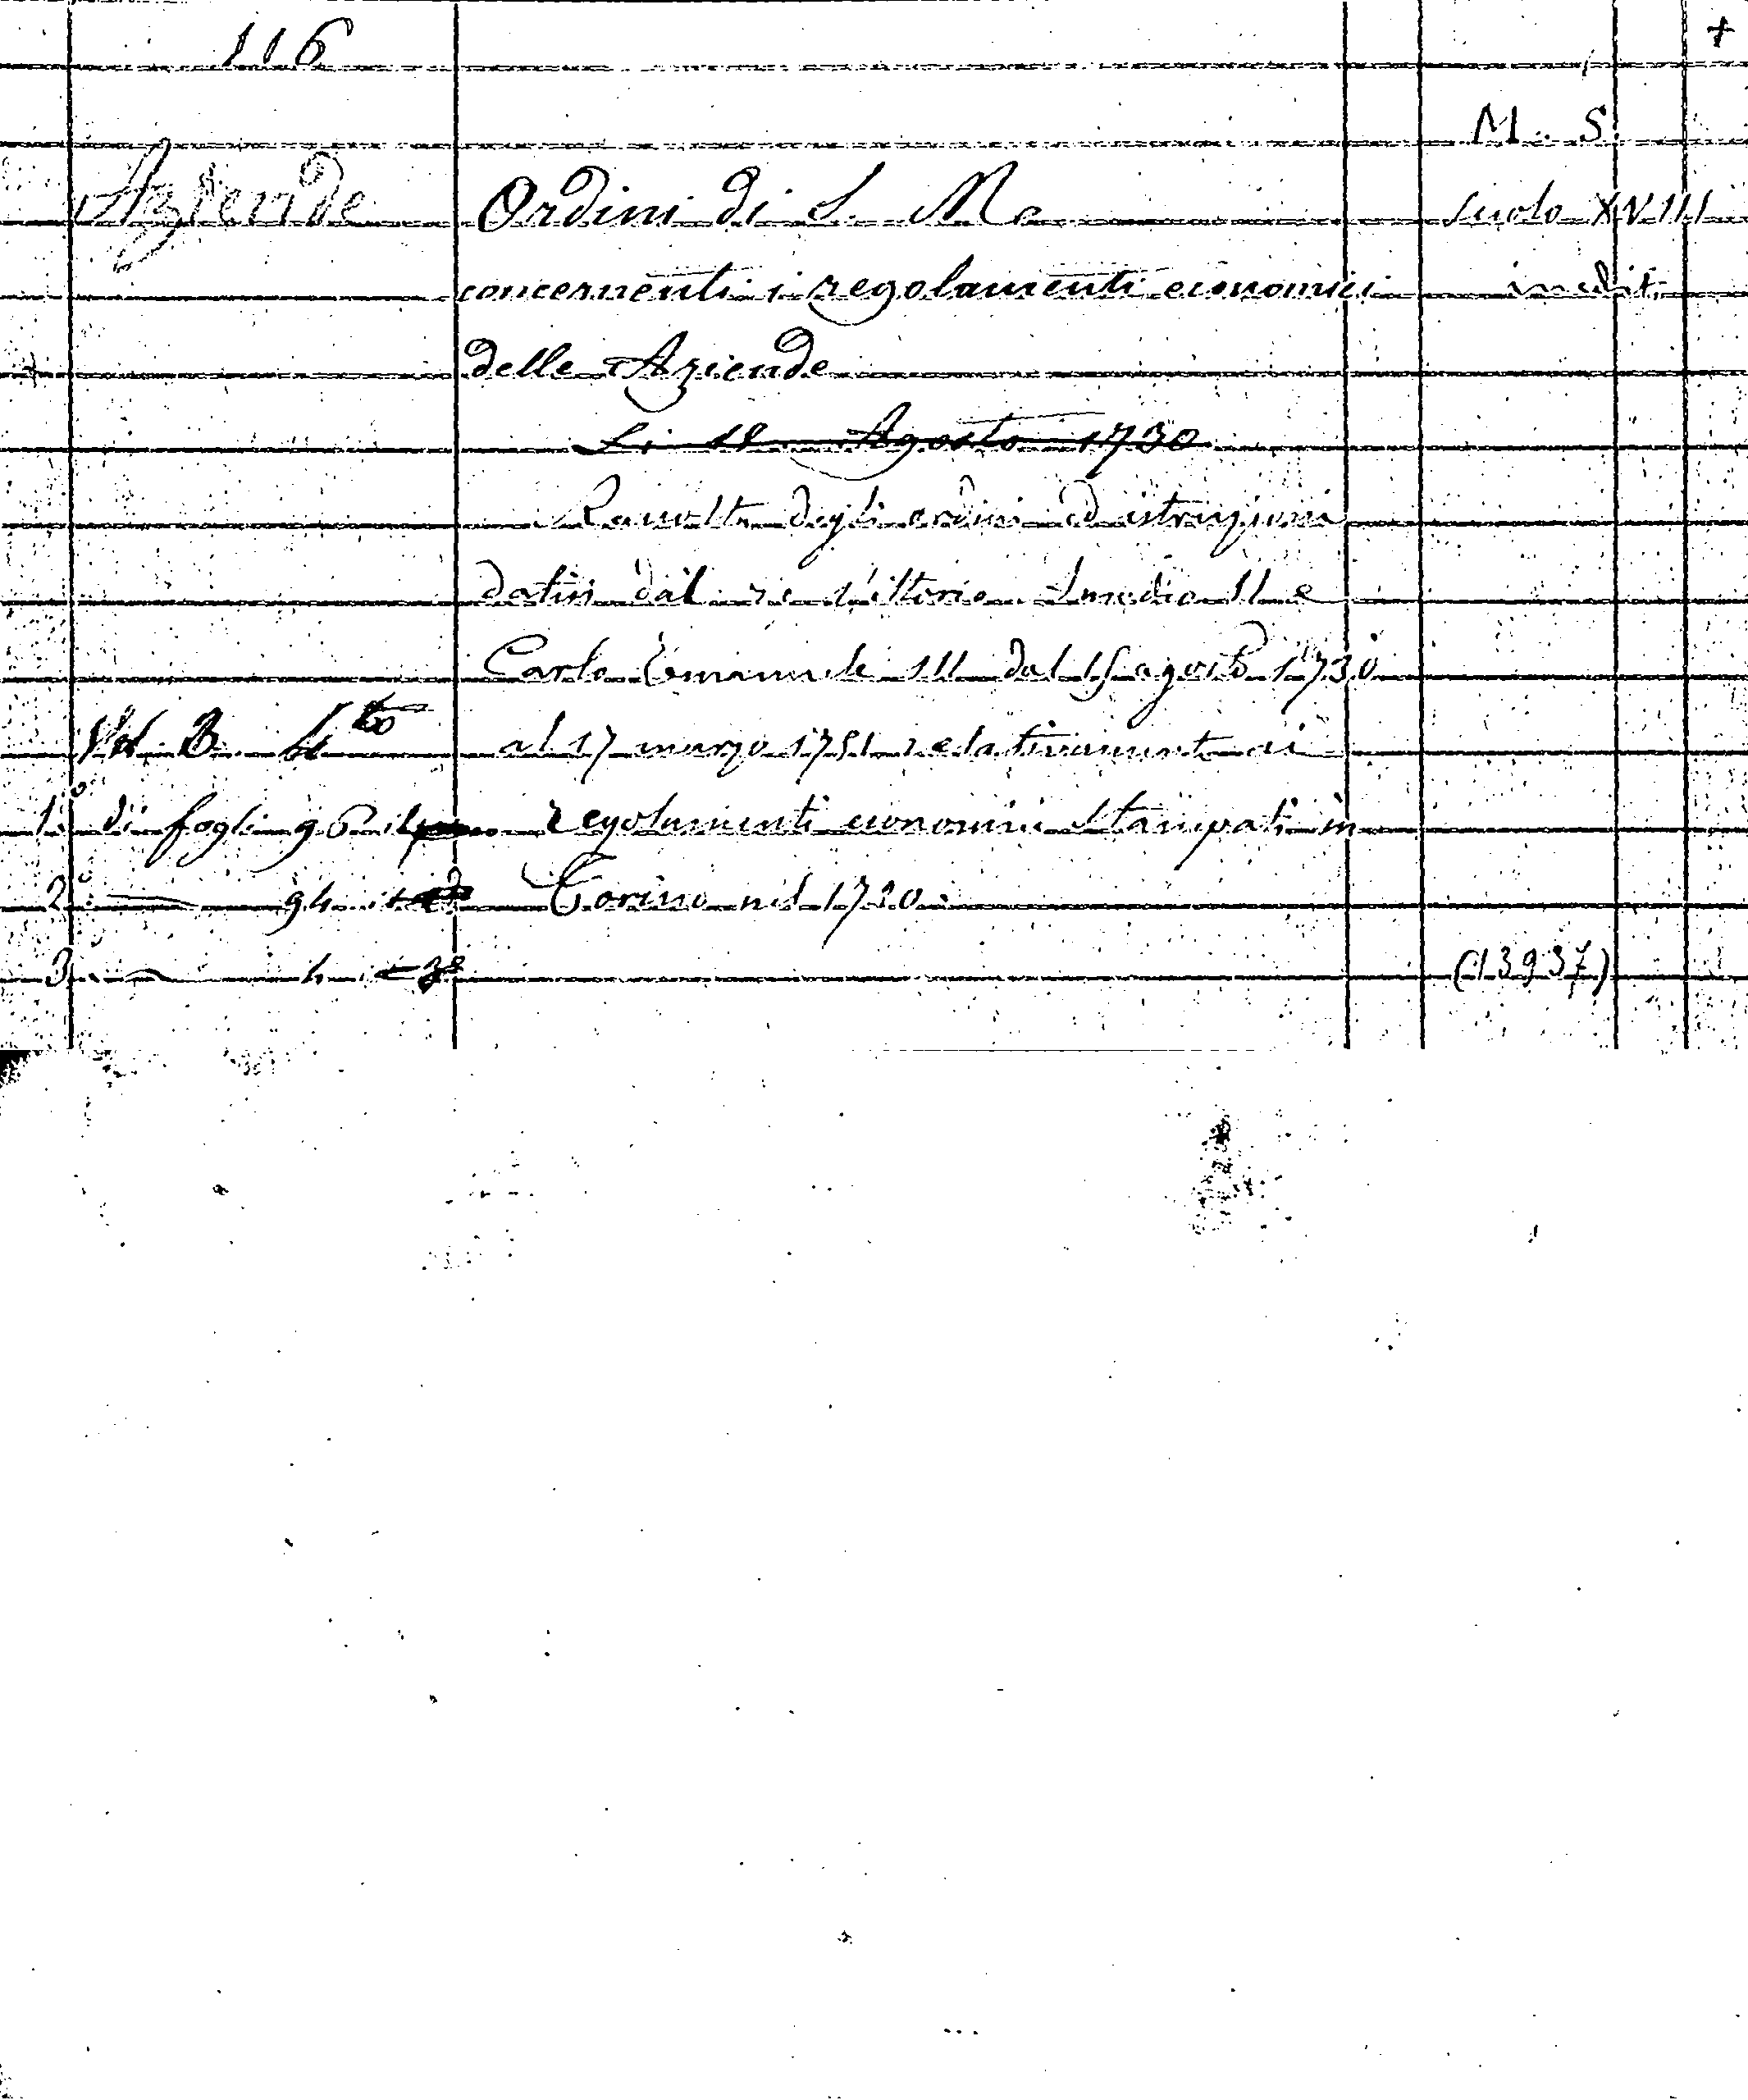 116
+
M. S.
Aziende Ordini di S. M. secolo XVIII
concernenti i regolamenti economici inediti
delle Aziende
Li Agosto 1730
Raccolta degli ordini ed istruzioni
datisi dal re Vittorio Amedeo II e
Carlo Emanuele III dal 15 agosto 1730
Vol. 3. 4to al 17 marzo 1751 relativamente ai
1° di fogli 96 il regolamenti economici stampati in
2° — 94 Torino nel 1730.
3 — 4 (13937)